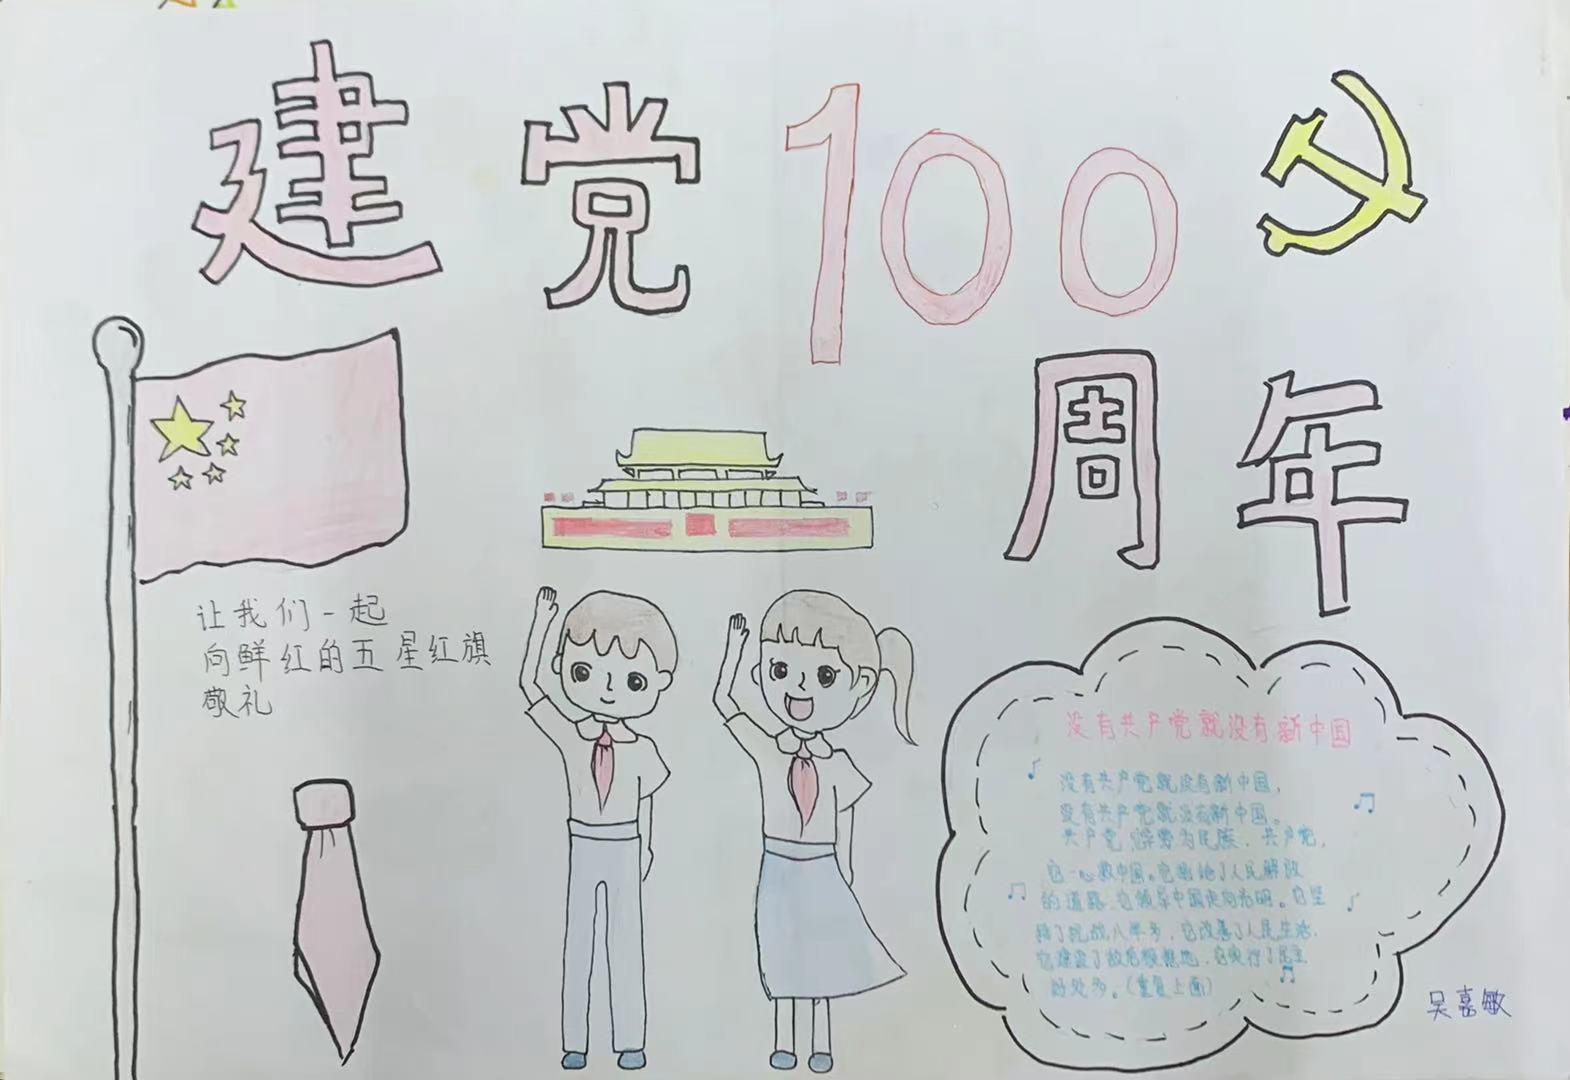 建党100
周年
让我们一起
向鲜红的五星红旗
敬礼
没有共产党就没有新中国
没有共产党就没有新中国，
没有共产党就没有新中国。
共产党，辛劳为民族，共产党，
它一心救中国。它指给了人民解放
的道路，它领导中国走向光明。它坚
持了抗战八年多，它改善了人民生活，
它建设了敌后根据地，它实行了民主
好处多。（重复上面）
吴嘉敏